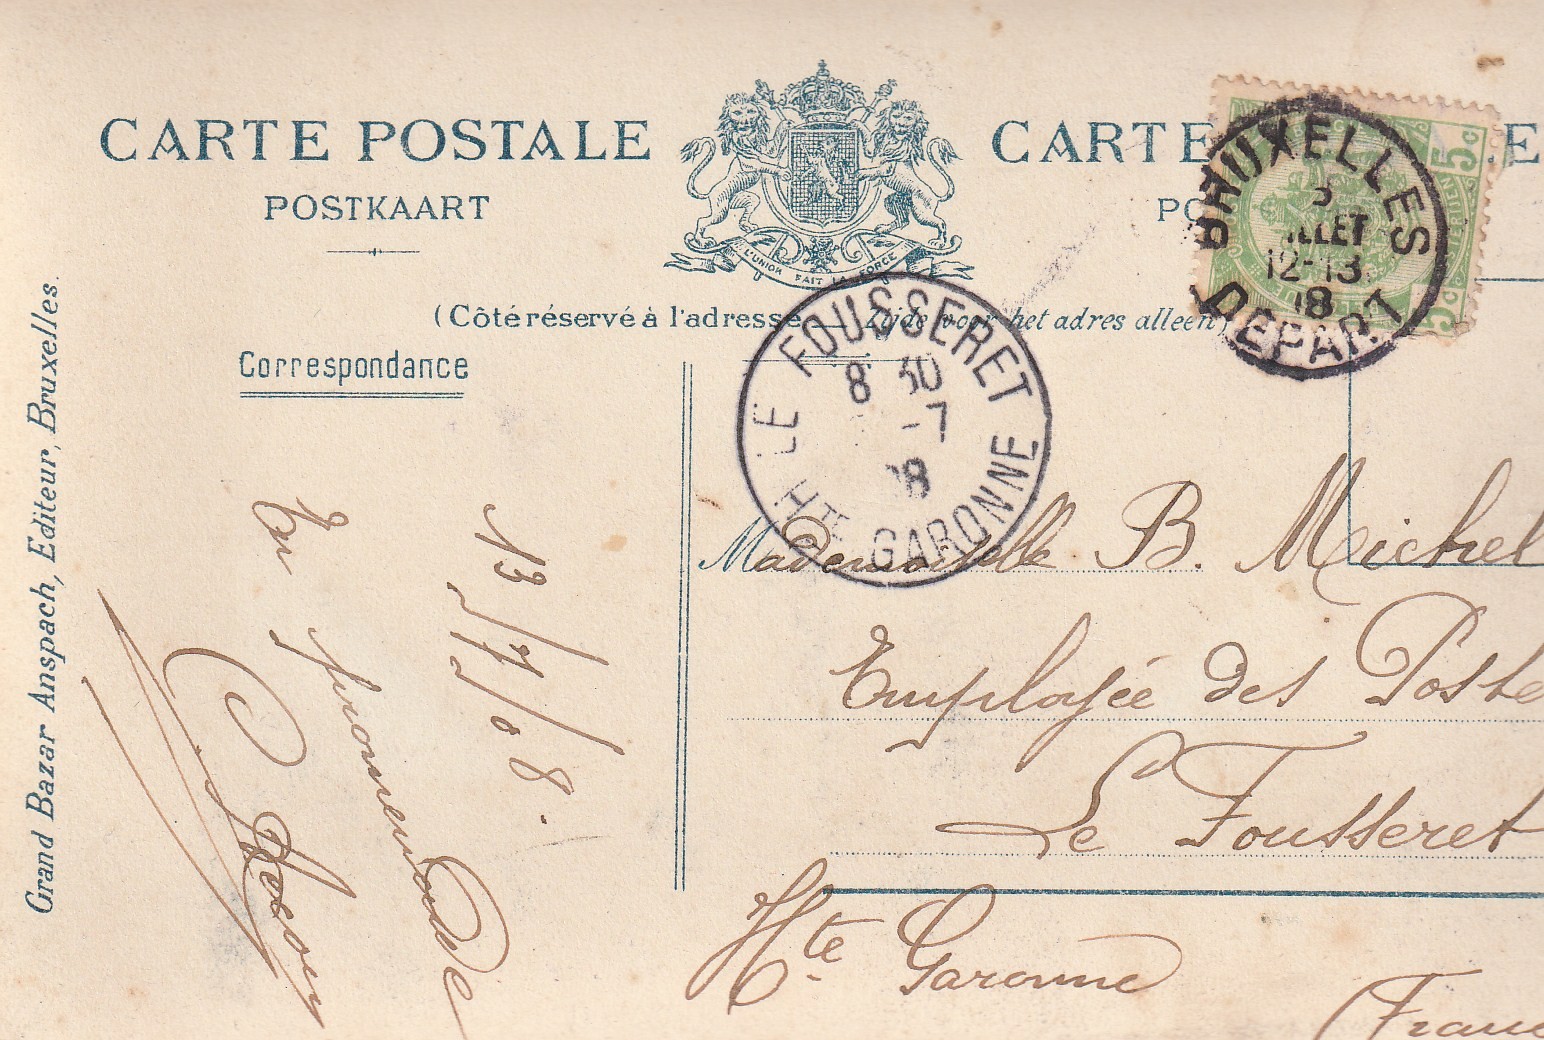 CARTE POSTALE
POSTKAART
L'UNION FAIT LA FORCE
CARTE
(Côté réservé à l'adresse — Zijde voor het adres alleen)
Correspondance
Grand Bazar Anspach, Editeur, Bruxelles.
5c
5c
BRUXELLES
12-13
DEPART
LE FOUSSERET
8 30
-7
08
Hte GARONNE
13/7/08.
En promenade
Mademoiselle B. Michel
Employée des Poste
Le Fousseret
Hte Garonne